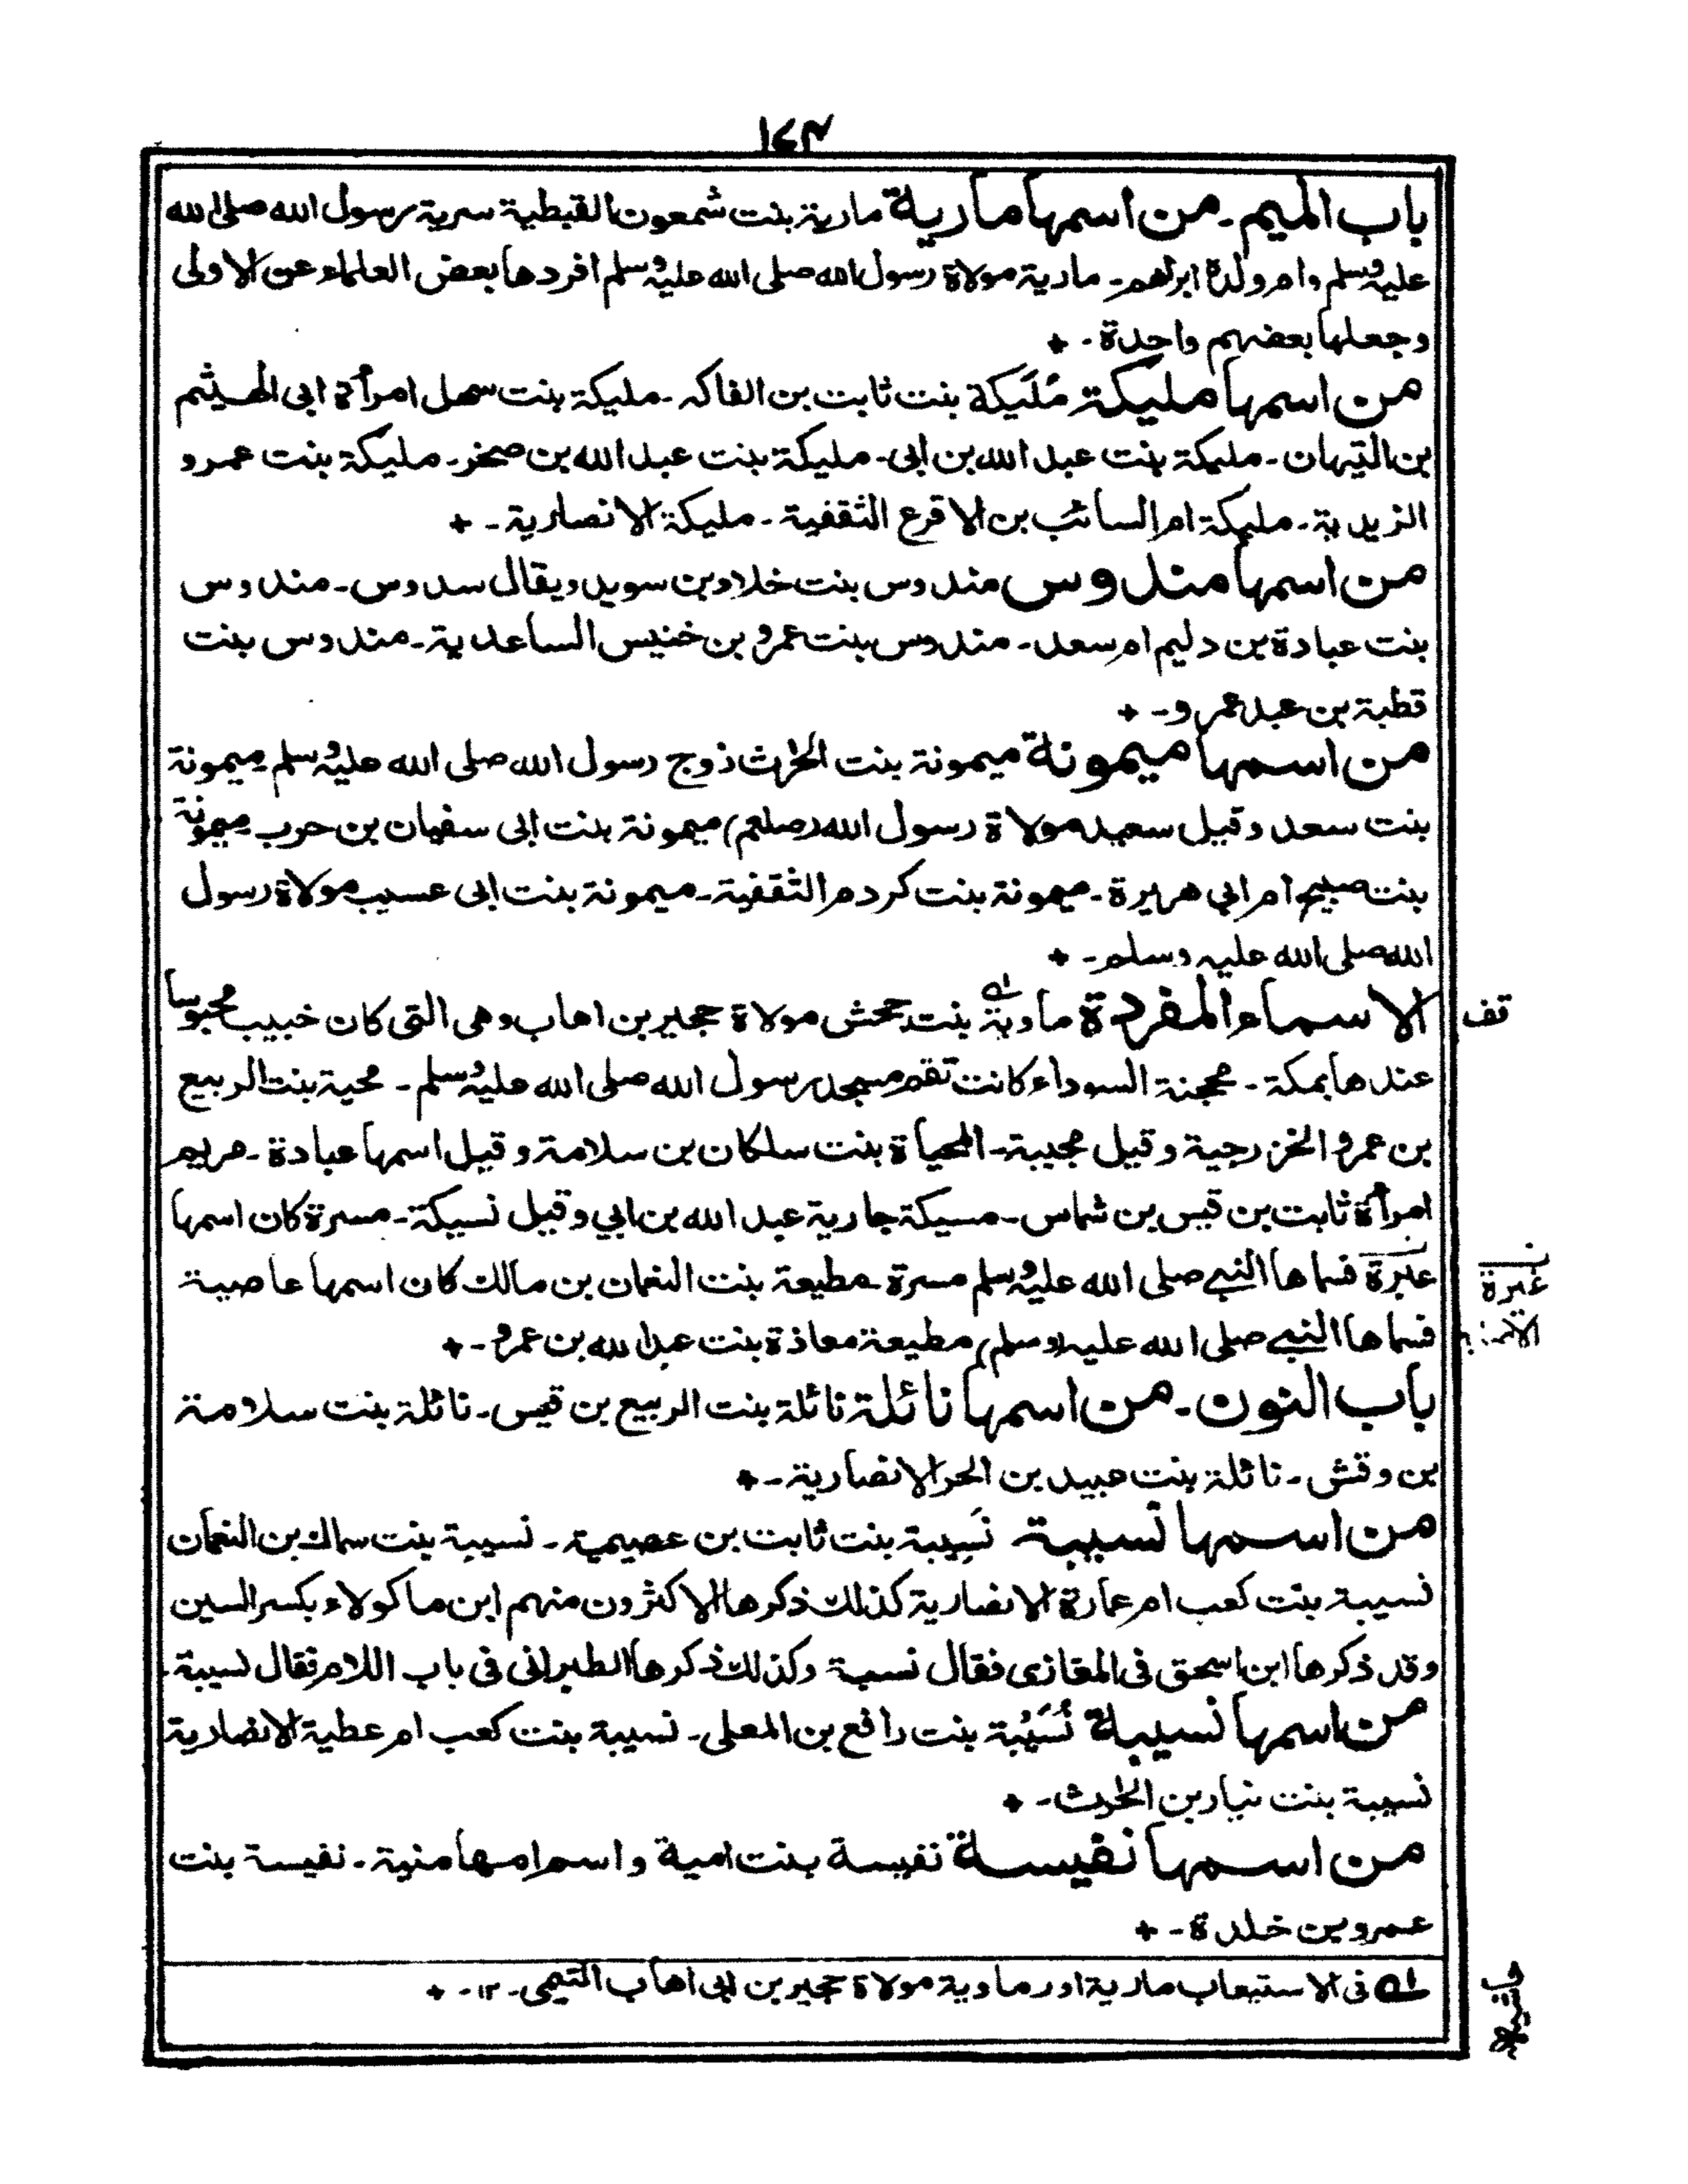 ١٧٤
باب الميم ۔ من اسمها مارية مارية بنت شمعون القبطية سرية رسول الله صلى الله
عليه وسلم وام ولدة ابراهيم ۔ مارية مولاة رسول الله صلى الله عليه وسلم افردها بعض العلماء عن الاولى
وجعلها بعضهم واحدة ۔ +
من اسمها مليكة مُلَيكة بنت ثابت بن الفاكه ۔ مليكة بنت سهل امرأة ابى الهيثم
بن التيهان ۔ مليكة بنت عبد الله بن ابى ۔ مليكة بنت عبد الله بن صخر ۔ مليكة بنت عمرو
الزيدية ۔ مليكة ام السائب بن الاقرع الثقفية ۔ مليكة الانصارية ۔ +
من اسمها مندوس مندوس بنت خلاد بن سويد ويقال سدوس ۔ مندوس
بنت عبادة بن دليم ام سعد ۔ مندوس بنت عمرو بن خنيس الساعدية ۔ مندوس بنت
قطبة بن عبد عمرو ۔ +
من اسمها ميمونة ميمونة بنت الحٰرث زوج رسول الله صلى الله عليه وسلم ۔ ميمونة
بنت سعد وقيل سعيد مولاة رسول الله (صلعم) ميمونة بنت ابى سفيان بن حرب ۔ ميمونة
بنت صبيح ام ابي هريرة ۔ ميمونة بنت كردم الثقفية ۔ ميمونة بنت ابى عسيب مولاة رسول
الله صلى الله عليه وسلم ۔ +
الاسماء المفردة ماوية ؎۱ بنت جحش مولاة حجير بن اهاب وهى التى كان خبيب محبوسا
قف
عندها بمكة ۔ محجنة السوداء كانت تقم مسجد رسول الله صلى الله عليه وسلم ۔ محبة بنت الربيع
بن عمرو الخزرجية وقيل مجيبة ۔ المحياة بنت سلكان بن سلامة وقيل اسمها عبادة ۔ مريم
امرأة ثابت بن قيس بن شماس ۔ مسيكة جارية عبد الله بن ابي وقيل نسيكة ۔ مسرة كان اسمها
عنبرة فسماها النبي صلى الله عليه وسلم مسرة ۔ مطيعة بنت النعمان بن مالك كان اسمها عاصية
غبرة
فسماها النبي صلى الله عليه (وسلم) مطيعة معاذة بنت عبد الله بن عمرو ۔ +
باب النون ۔ من اسمها نائلة نائلة بنت الربيع بن قيس ۔ نائلة بنت سلامة
بن وقش ۔ نائلة بنت عبيد بن الحر الانصارية ۔ +
من اسمها نسيبة نَسِيبة بنت ثابت بن عصيمة ۔ نسيبة بنت سماك بن النعمان
نسيبة بنت كعب ام عمارة الانصارية كذلك ذكرها الاكثرون منهم ابن ماكولاء بكسر السين
وقد ذكرها ابن اسحق فى المغازى فقال نسيبة وكذلك ذكرها الطبرانى فى باب اللام فقال لسيبة ۔
من اسمها نسيبة نُسَيْبة بنت رافع بن المعلى ۔ نسيبة بنت كعب ام عطية الانصارية
نسيبة بنت نيار بن الحٰرث ۔ +
من اسمها نفيسة نفيسة بنت امية و اسم امها منية ۔ نفيسة بنت
عمرو بن خلدة ۔ +
؎۱ فى الاستيعاب مارية اور ماوية مولاة حجير بن ابى اهاب التيمى ۔ ۱۲ ۔ +